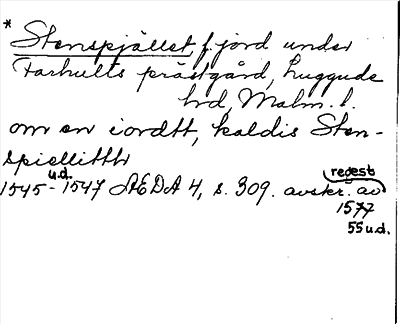 * Stenspjället f. jord under
Farhults prästgård, Luggude
hd, Malm. l.
om en iordtt, kaldis Sten-
spiellitth
u.d. regest
1545-1547 ÆDA 4, s. 309. avskr. av
1577
55 u.d.